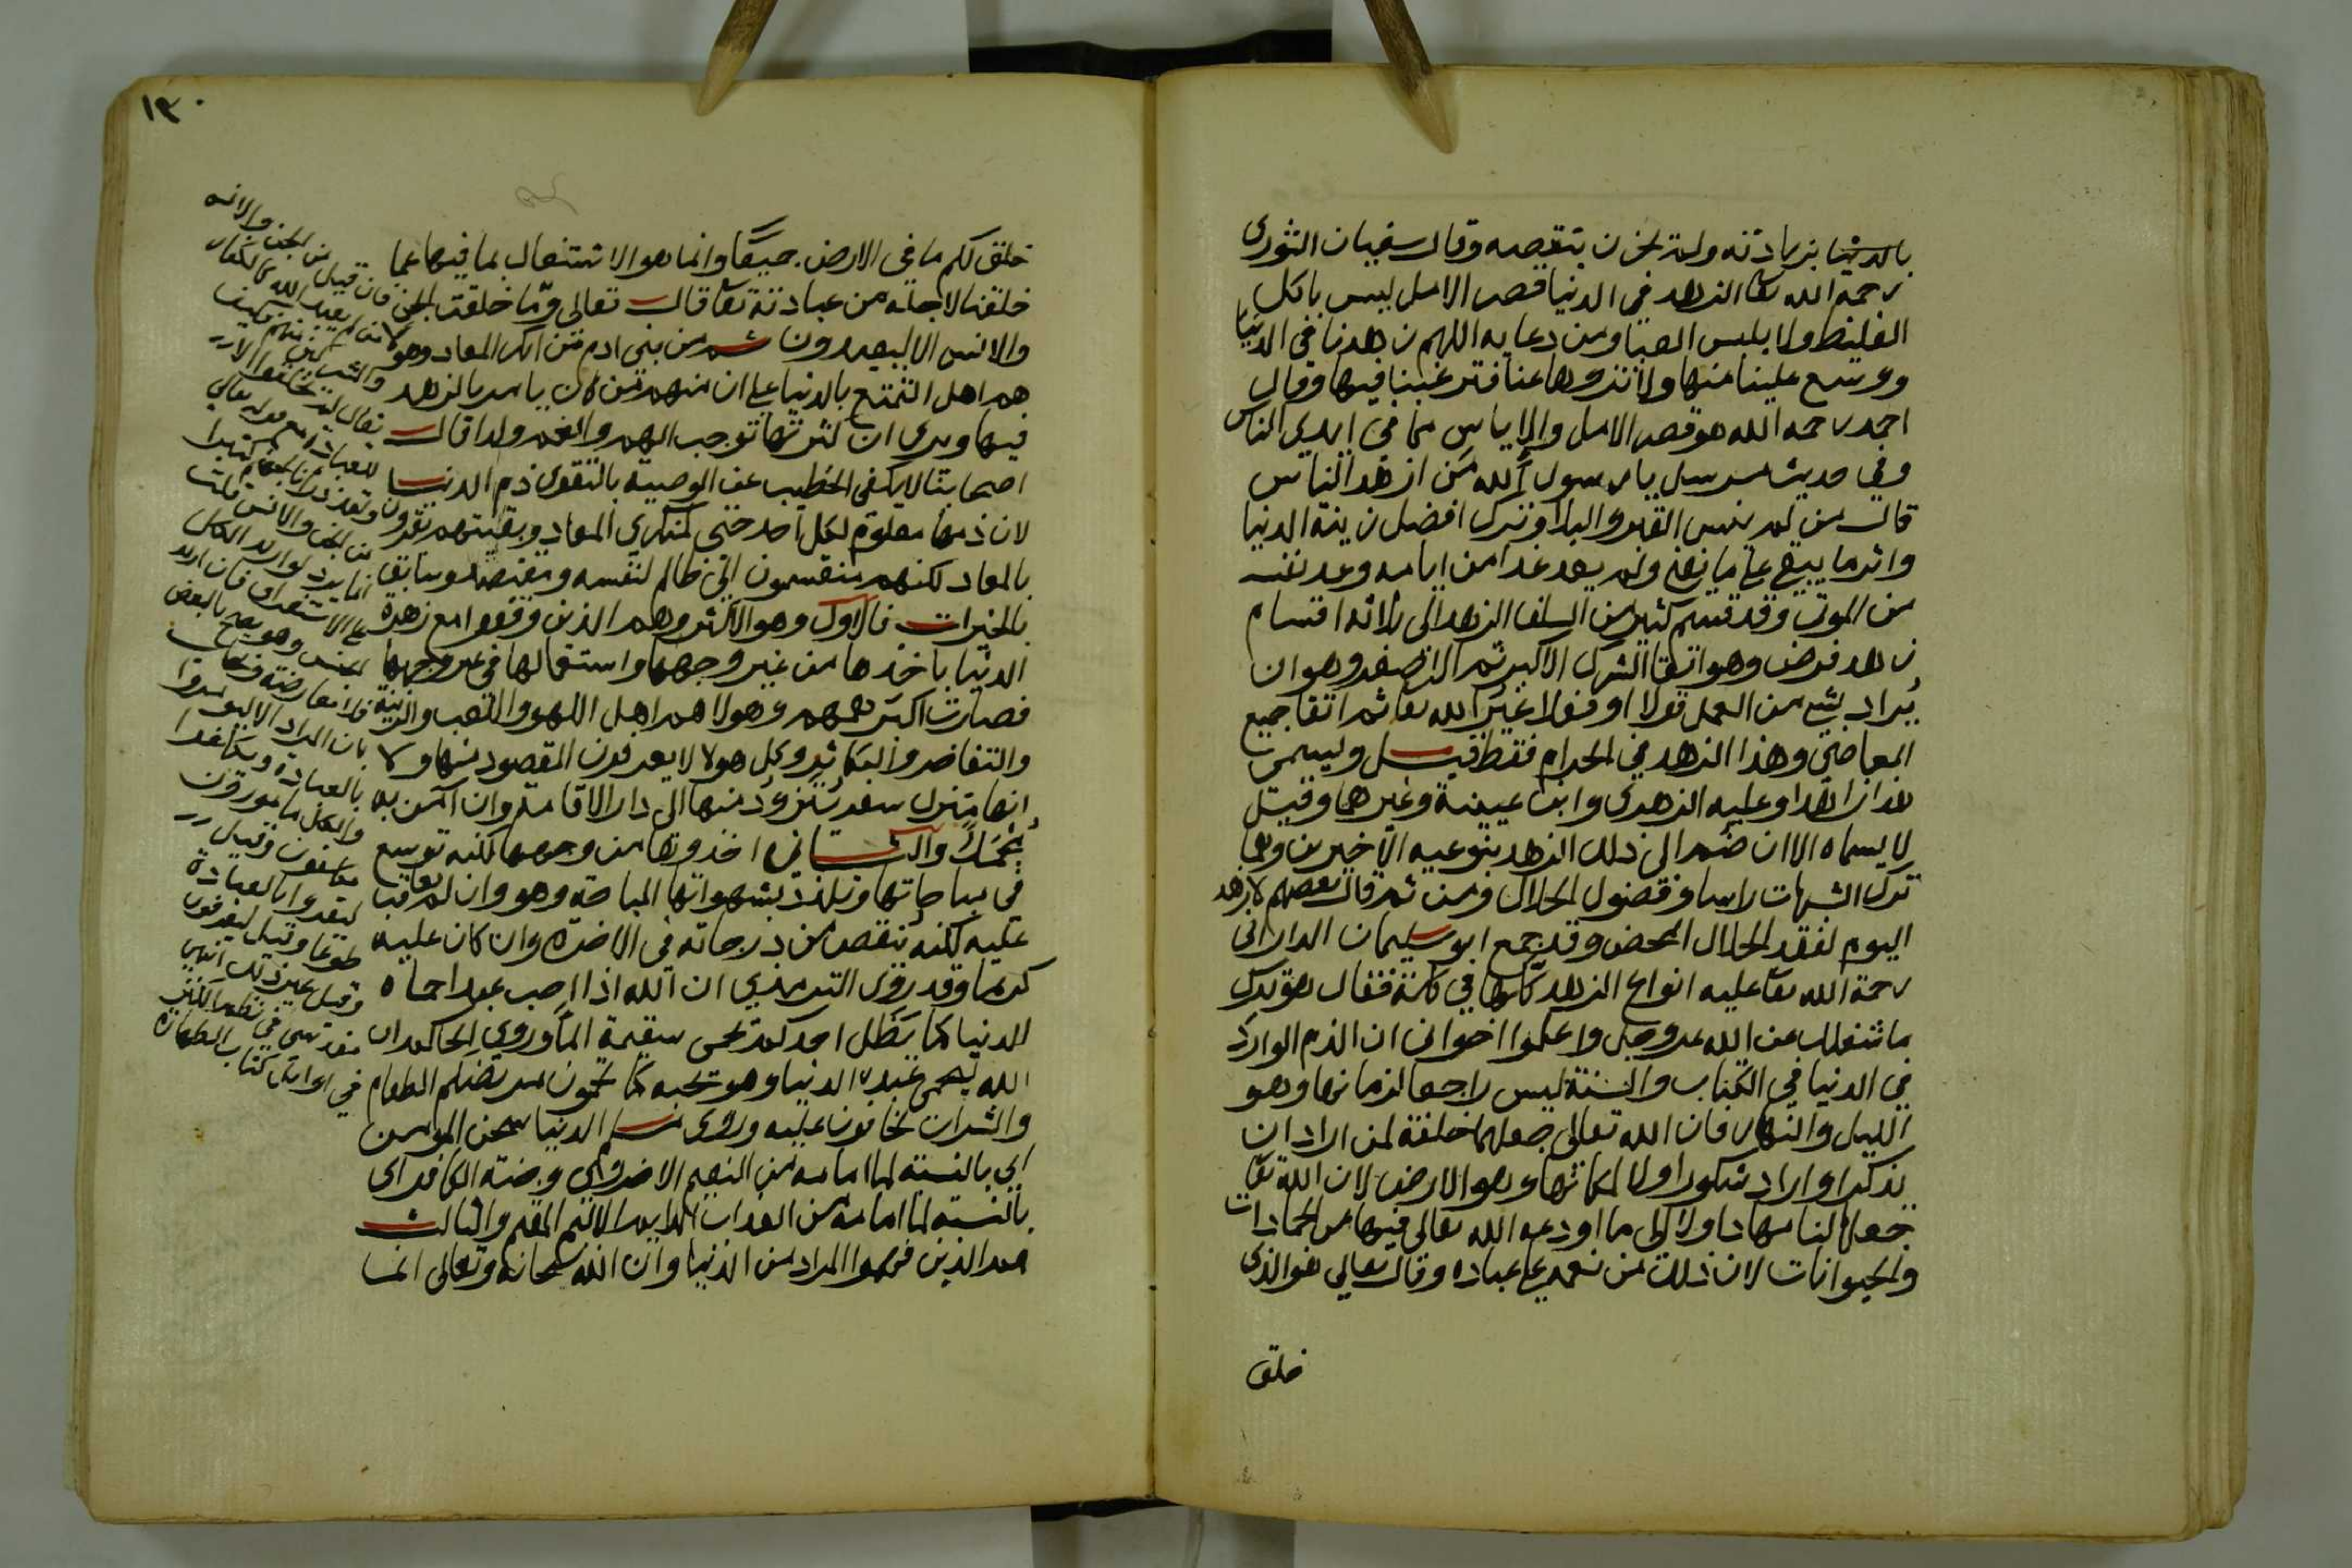 بالدنيا بزيادته ولم يحزن بنقصه وقال سفيان الثوري
رحمه الله تعا الزهد في الدنيا قصر الامل ليس باكل
الغليظ ولا بلبس العبا ومن دعايه اللهم زهدنا في الدنيا
ووسع علينا منها ولا تزوها عنا فترغبنا فيها وقال
احمد رحمه الله هو قصر الامل والاياس مما في ايدي الناس
وفي حديث مرسل يا رسول الله من ازهد الناس
قال من لم ينس القبر والبلا وترك افضل زينة الدنيا
واثر ما يبقى على ما يفنى ولم يعد غدا من ايامه وعد نفسه
من الموتى وقد قسم كثير من السلف الزهد الى ثلاثة اقسام
زهد فرض وهو اتقا الشرك الاكبر ثم الاصغر وهو ان
يراد بشي من العمل قولا او فعلا غير الله تعا ثم اتقا جميع
المعاصي وهذا الزهد في الحرام فقط قيل وليسمى
هذا زاهدا وعليه الزهري وابن عيينة وغيرهما وقيل
لا يسماه الا ان ضم الى ذلك الزهد بنوعيه الاخيرين وهما
ترك الشبهات راسا وفضول الحلال ومن ثم قال بعضهم لا زهد
اليوم لفقد الحلال المحض وقد جمع ابو سليمان الداراني
رحمة الله تعا عليه انواع الزهد كلها في كلمة فقال هو ترك
ما شغلك عن الله عز وجل واعلموا اخواني ان الذم الوارد
في الدنيا في الكتاب والسنة ليس راجعا لزمانها وهو
الليل والنهار فان الله تعالى جعلهما خلفة لمن اراد ان
يذكر او اراد شكورا ولا لمكانها وهو الارض لان الله تعا
جعلها لنا مهادا ولا الى ما اودعه الله تعالى فيها من الجمادات
والحيوانات لان ذلك من نعمه على عباده وقال تعالى هو الذي
خلق
١٣٠
خلق لكم ما في الارض جميعا وانما هو الاشتغال بما فيها عما
خلقنا لاجله من عبادته تعا قال تعالى وما خلقت الجن
والانس الا ليعبدون ثم من بني ادم من انكر المعاد وهو
هم اهل التمتع بالدنيا على ان منهم من كان يامر بالزهد
فيها ويرى ان كثرتها توجب الهم والغم ولذا قال
اصحابنا لا يكفي الخطيب عن الوصية بالتقوى ذم الدنيا
لان ذمها معلوم لكل احد حتى لمنكري المعاد وبقيتهم يقرون
بالمعاد لكنهم منقسمون الى ظالم لنفسه ومقتصد وسابق
بالخيرات فالاول وهو الاكثر وهم الذين وقفوا مع زهرة
الدنيا باخذها من غير وجهها واستعمالها في غير وجهها
فصارت اكبر همهم وهولا هم اهل اللهو واللعب والزينة
والتفاخر والتكاثر وكل هولا لا يعرفون المقصود منها ولا
انها منزل سفر يتزود منها الى دار الاقامة وان آمن به
مجملا والثاني اخذوها من وجهها لكنه توسع
في مباحاتها وتلذذ بشهواتها المباحة وهو وان لم يعاقب
عليه لكنه ينقص من درجاته في الاخرة وان كان عليه
كريما وقد روى الترمذي ان الله اذا احب عبدا حماه
الدنيا كما يظل احدكم يحمي سقيمه الما وروى الحاكم ان
الله ليحمي عبده الدنيا وهو يحبه كما تحمون مريضكم الطعام
والشراب تخافون عليه وروى مسلم الدنيا سجن المومن
اي بالنسبة لما امامه من النعيم الاخروي وجنة الكافر اي
بالنسبة لما امامه من العذاب الاليم المقيم والثالث
هم الذين فهموا المراد من الدنيا وان الله سبحانه وتعالى انما
فان قيل من الجن والانس
من لم يعبد الله كالكفار
بان المراد الا ليومروا
بالعبادة ويكلفوا
والكل مامورون
مكلفون وقيل
ليقروا بالعبادة
طوعا وقيل ليعرفون
وقيل غير ذلك انتهى
في اوائل كتاب الطهارة